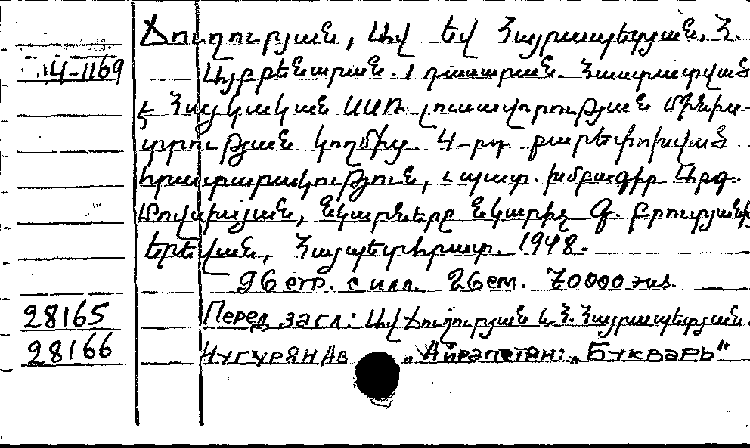 Ճուղուրյան, Ավ եվ Հայրապետյան, Հ.
4-1169 Այբբենարան. 1 դասարան. Հաստատված
է Հայկական ՍՍՌ լուսավորության մինիս-
տրության կողմից 4-րդ բարեփոխված
հրատարակություն, պատ. խմբագիր Արգ.
Մովսիսյան, նկարները նկարիչ Գ. Բրուտյանի
Երեվան, Հայպետհրատ. 1948.
96 стр. с илл. 26 см. 70000 экз.
28165 Перед загл: Ավ Ճուղուրյան և Հ. Հայրապետյան.
28166 Чугурян Ав „Айрапетян: „Букварь"